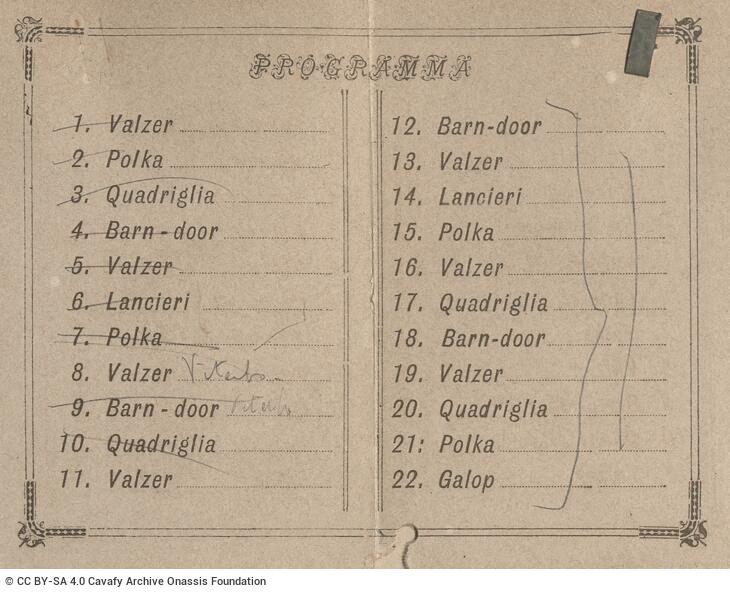 PROGRAMMA
1. Valzer
2. Polka
3. Quadriglia
4. Barn-door
5. Valzer
6. Lancieri
7. Polka
8. Valzer Viterbo
9. Barn-door Viterbo
10. Quadriglia
11. Valzer
12. Barn-door
13. Valzer
14. Lancieri
15. Polka
16. Valzer
17. Quadriglia
18. Barn-door
19. Valzer
20. Quadriglia
21: Polka
22. Galop
© CC BY-SA 4.0 Cavafy Archive Onassis Foundation